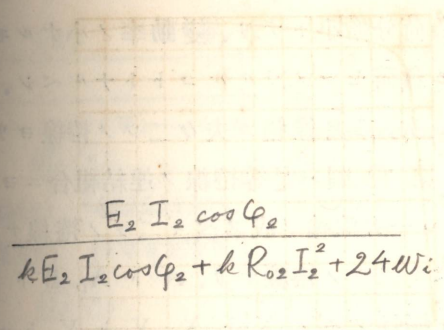 E₂ I₂ cos φ₂
kE₂ I₂ cos φ₂ + k R₀₂ I₂² + 24 Wi